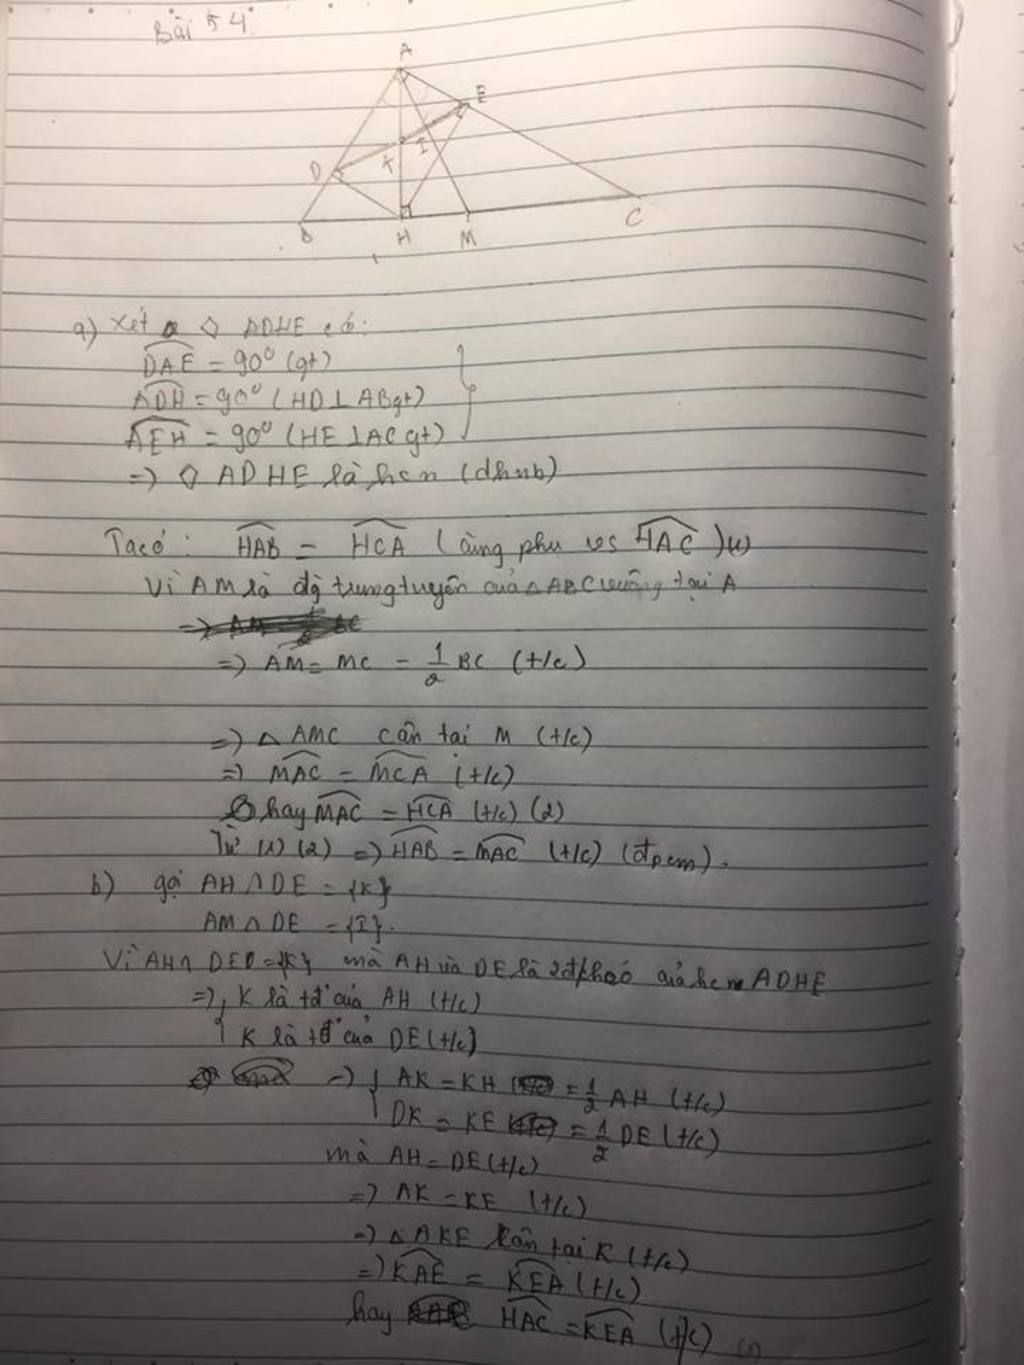 Bài 54
A
E
D
K
I
B
H
M
C
a) Xét ◇ ADHE có:
DAE = 90° (gt)
ADH = 90° (HD⊥AB gt)
AEH = 90° (HE⊥AC gt)
=> ◇ ADHE là hcn (dhnb)
Ta có: HAB = HCA (cùng phụ vs HAC) (1)
Vì AM là đg trung tuyến của △ABC vuông tại A
=> AM = MC = 1/2 BC (t/c)
=> △ AMC cân tại M (t/c)
=> MAC = MCA (t/c)
hay MAC = HCA (t/c) (2)
Từ (1) (2) => HAB = MAC (t/c) (đpcm).
b) gọi AH ∩ DE = {K}
AM ∩ DE = {I}.
Vì AH ∩ DE = {K} mà AH và DE là 2 đ/chéo của hcn ADHE
=> K là tđ của AH (t/c)
K là tđ của DE (t/c)
=> AK = KH = 1/2 AH (t/c)
DK = KE = 1/2 DE (t/c)
mà AH = DE (t/c)
=> AK = KE (t/c)
=> △ AKE cân tại K (t/c)
=> KAE = KEA (t/c)
hay HAC = KEA (t/c)